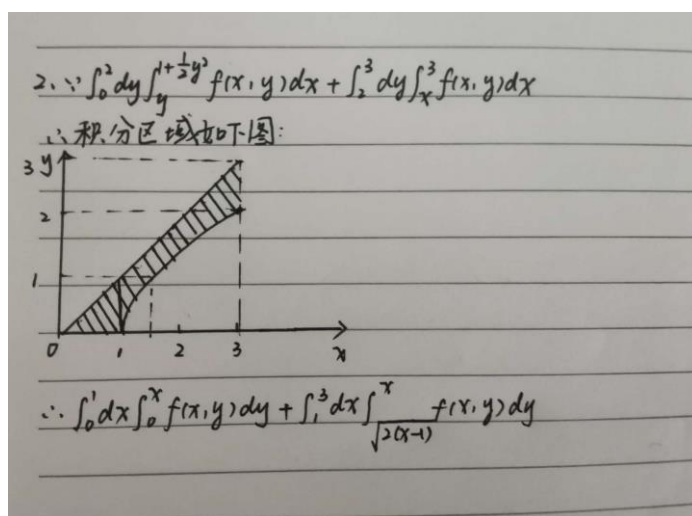 2. ∵ ∫₀² dy ∫_y^{1+½y²} f(x,y)dx + ∫₂³ dy ∫_x^3 f(x,y)dx
∴ 积分区域如下图:
3 y
2
1
0 1 2 3 x
∴ ∫₀¹ dx ∫₀^x f(x,y)dy + ∫₁³ dx ∫_{√2(x-1)}^x f(x,y)dy